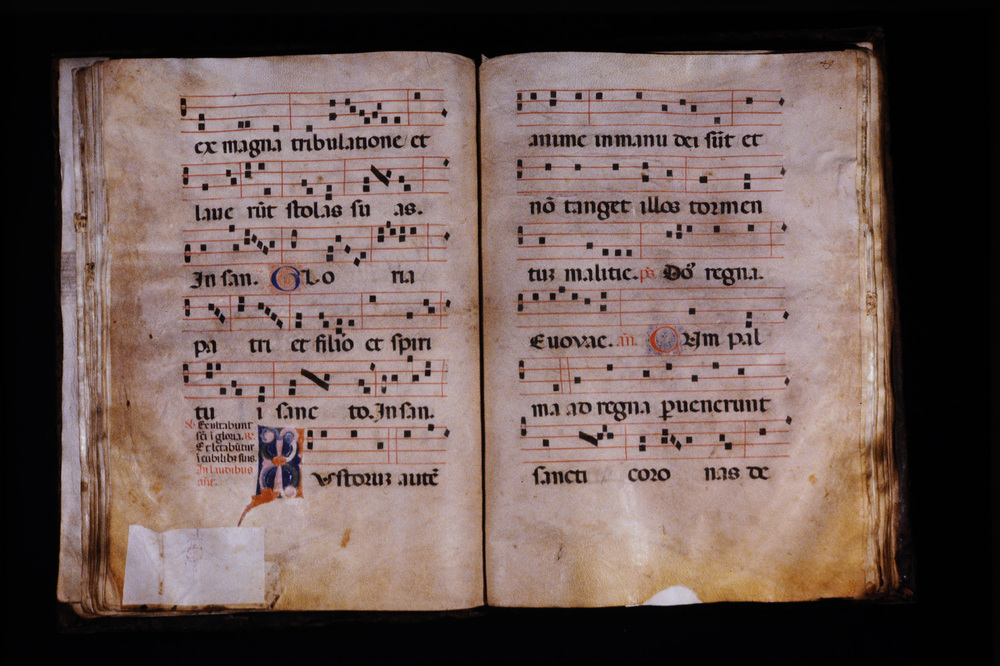 ex magna tribulatione et
laue rūt stolas su as.
In san. GLo ria
pa tri et filio et spiri
tu i sanc to. In san.
℣. Exultabunt
sc̄i ī gloria. ℟.
Et letabūtur
ī cubilib; suis.
In laudibus
ant.
Iustoruꝫ autē
49
anime in manu dei sūt et
nō tanget illos tormen
tuꝫ malitie. p̄s Do�̄s regna.
Euouae. an̄. CUm pal
ma ad regna ꝑuenerunt
sancti coro nas de